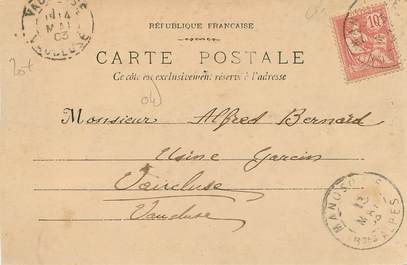 RÉPUBLIQUE FRANCAISE
CARTE POSTALE
Ce côté est exclusivement réservé à l'adresse
Monsieur Alfred Bernard
Usine Garcin
Vaucluse
Vaucluse
10
VAUCLUSE
14
MAI
03
VAUCLUSE
MANOSQUE
13
MAI
BSES ALPES